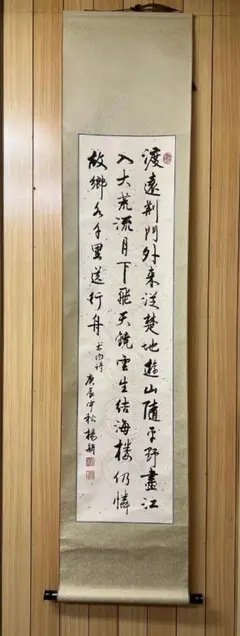 渡遠荆門外来從楚地遊山隨平野盡江
入大荒流月下飛天鏡雲生結海楼仍憐
故鄉水千里送行舟
庚辰中秋楊